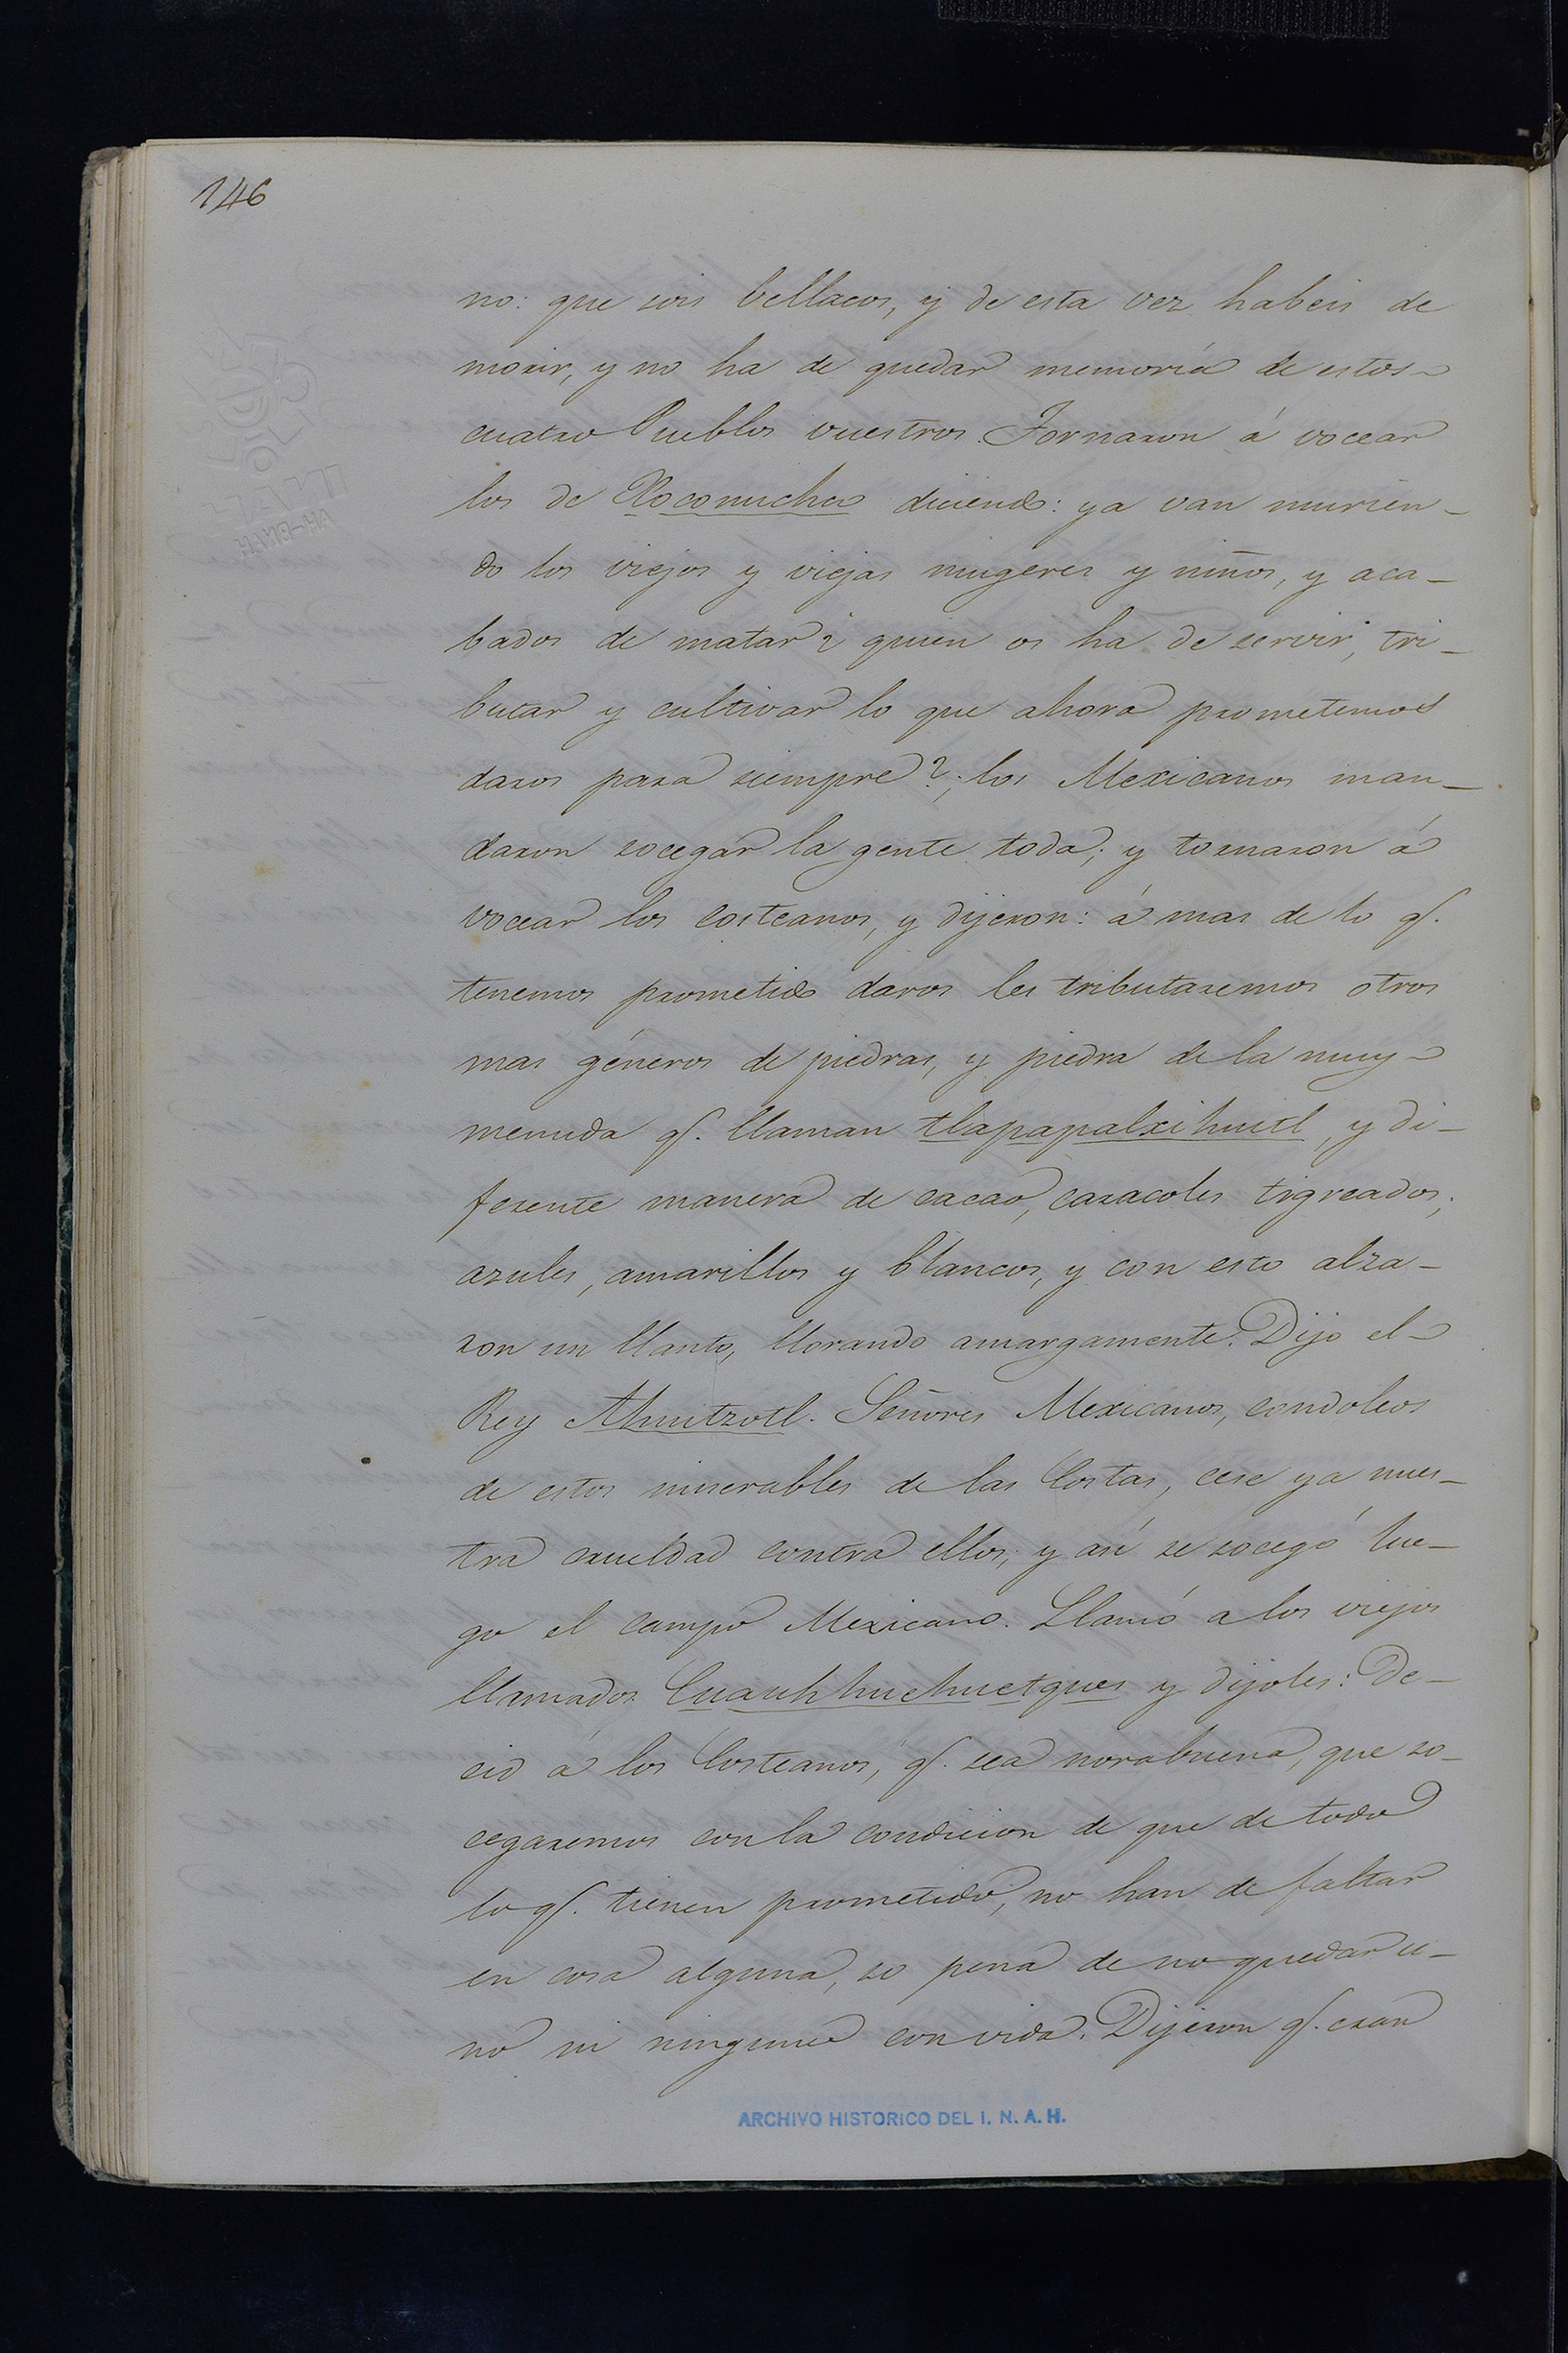 146
no: que sois bellacos, y de esta vez habeis de
morir, y no ha de quedar memoria de estos
cuatro Pueblos vuestros. Tornaron á vocear
los de Xoconuchco diciendo: ya van murien-
do los viejos y viejas mugeres y niños, y aca-
bados de matar ¿ quien os ha de servir, tri-
butar y cultivar lo que ahora prometemos
daros para siempre?; los Mexicanos man-
daron socegar la gente toda; y tornaron á
vocear los costeanos, y dijeron: á mas de lo q.
tenemos prometido daros les tributaremos otros
mas géneros de piedras, y piedra de la muy
menuda q. llaman tlapapalxihuitl, y di-
ferente manera de cacao, caracoles tigreados,
azules, amarillos y blancos, y con esto alza-
ron un llanto, llorando amargamente. Dijo el
Rey Ahuitzotl. Señores Mexicanos, condoleos
de estos miserables de las Costas, cese ya nues-
tra crueldad contra ellos; y asi se socegó lue-
go el campo Mexicano. Llamó a los viejos
llamados Cuauhhuehuetques y dijoles: De-
cid á los Costeanos, q. sea norabuena, que so-
cegaremos con la condicion de que de todo
lo q. tienen prometido, no han de faltar
en cosa alguna, so pena de no quedar u-
no ni ninguno con vida. Dijeron q. eran
ARCHIVO HISTORICO DEL I. N. A. H.